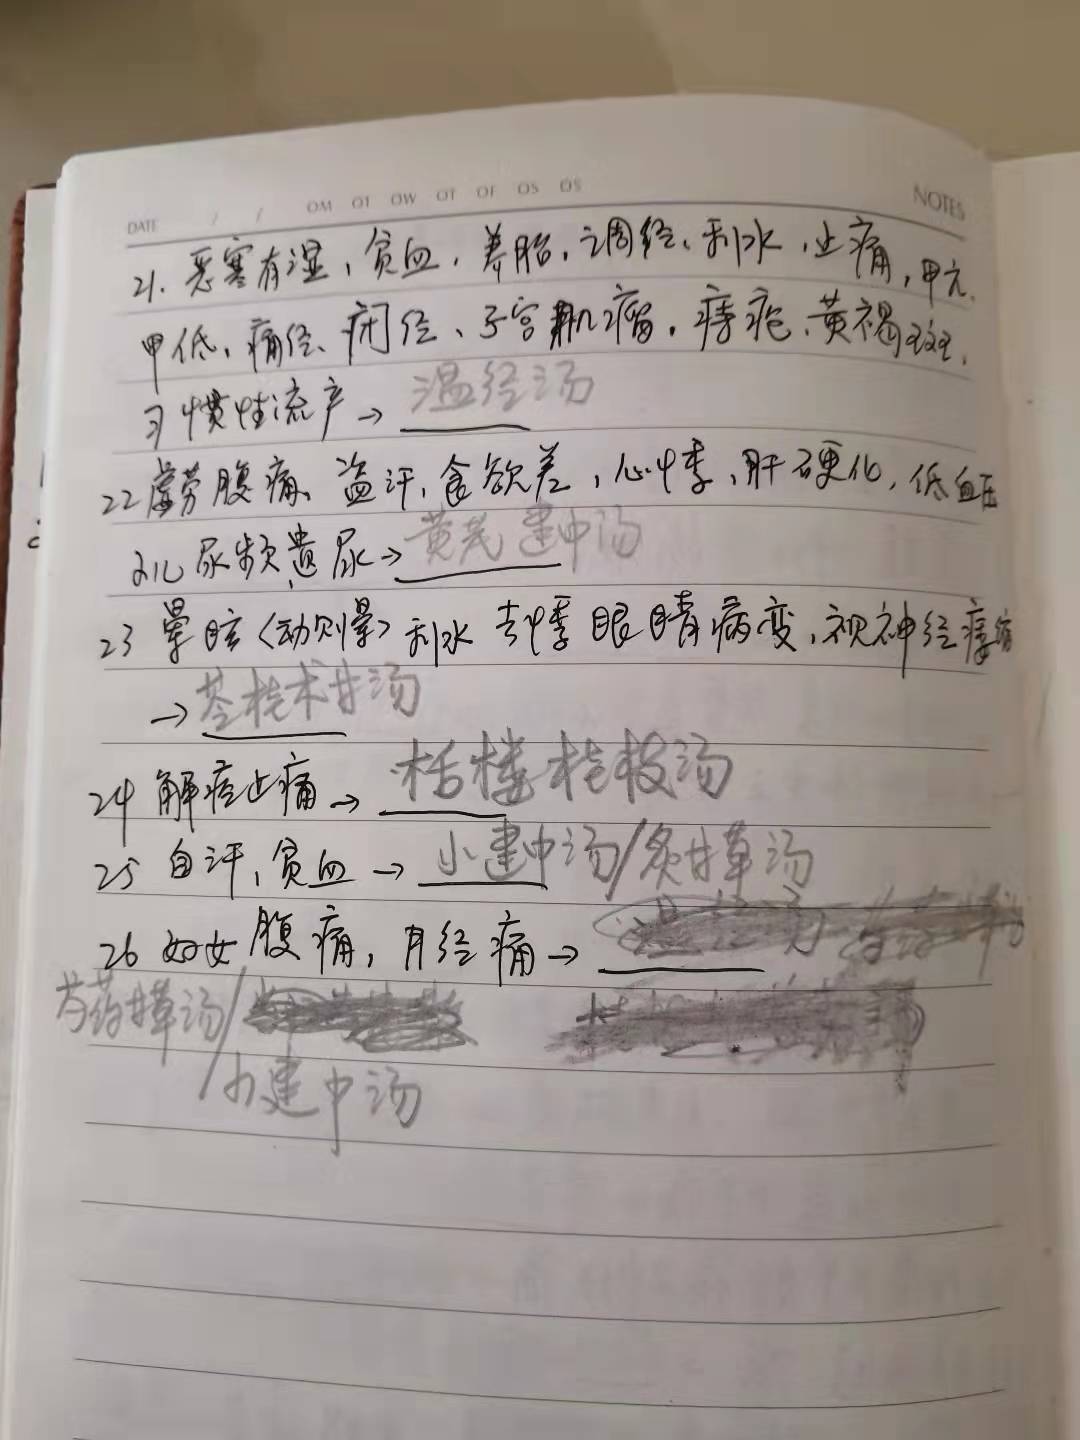 DATE / / OM OT OW OT OF OS OS NOTES
21. 恶寒有湿，贫血，养胎，调经、利水，止痛，甲亢、
甲低、痛经、闭经、子宫肌瘤，痔疮、黄褐斑，
习惯性流产→ 温经汤
22 虚劳腹痛、盗汗，食欲差，心悸，肝硬化，低血压
小儿尿频遗尿→ 黄芪建中汤
23 晕眩〈动则晕〉利水 去悸 眼睛病变，视神经萎缩
→ 苓桂术甘汤
24 解痉止痛→ 栝楼桂枝汤
25 自汗，贫血→ 小建中汤/炙甘草汤
26 妇女腹痛，月经痛→
芍药甘草汤/
/小建中汤